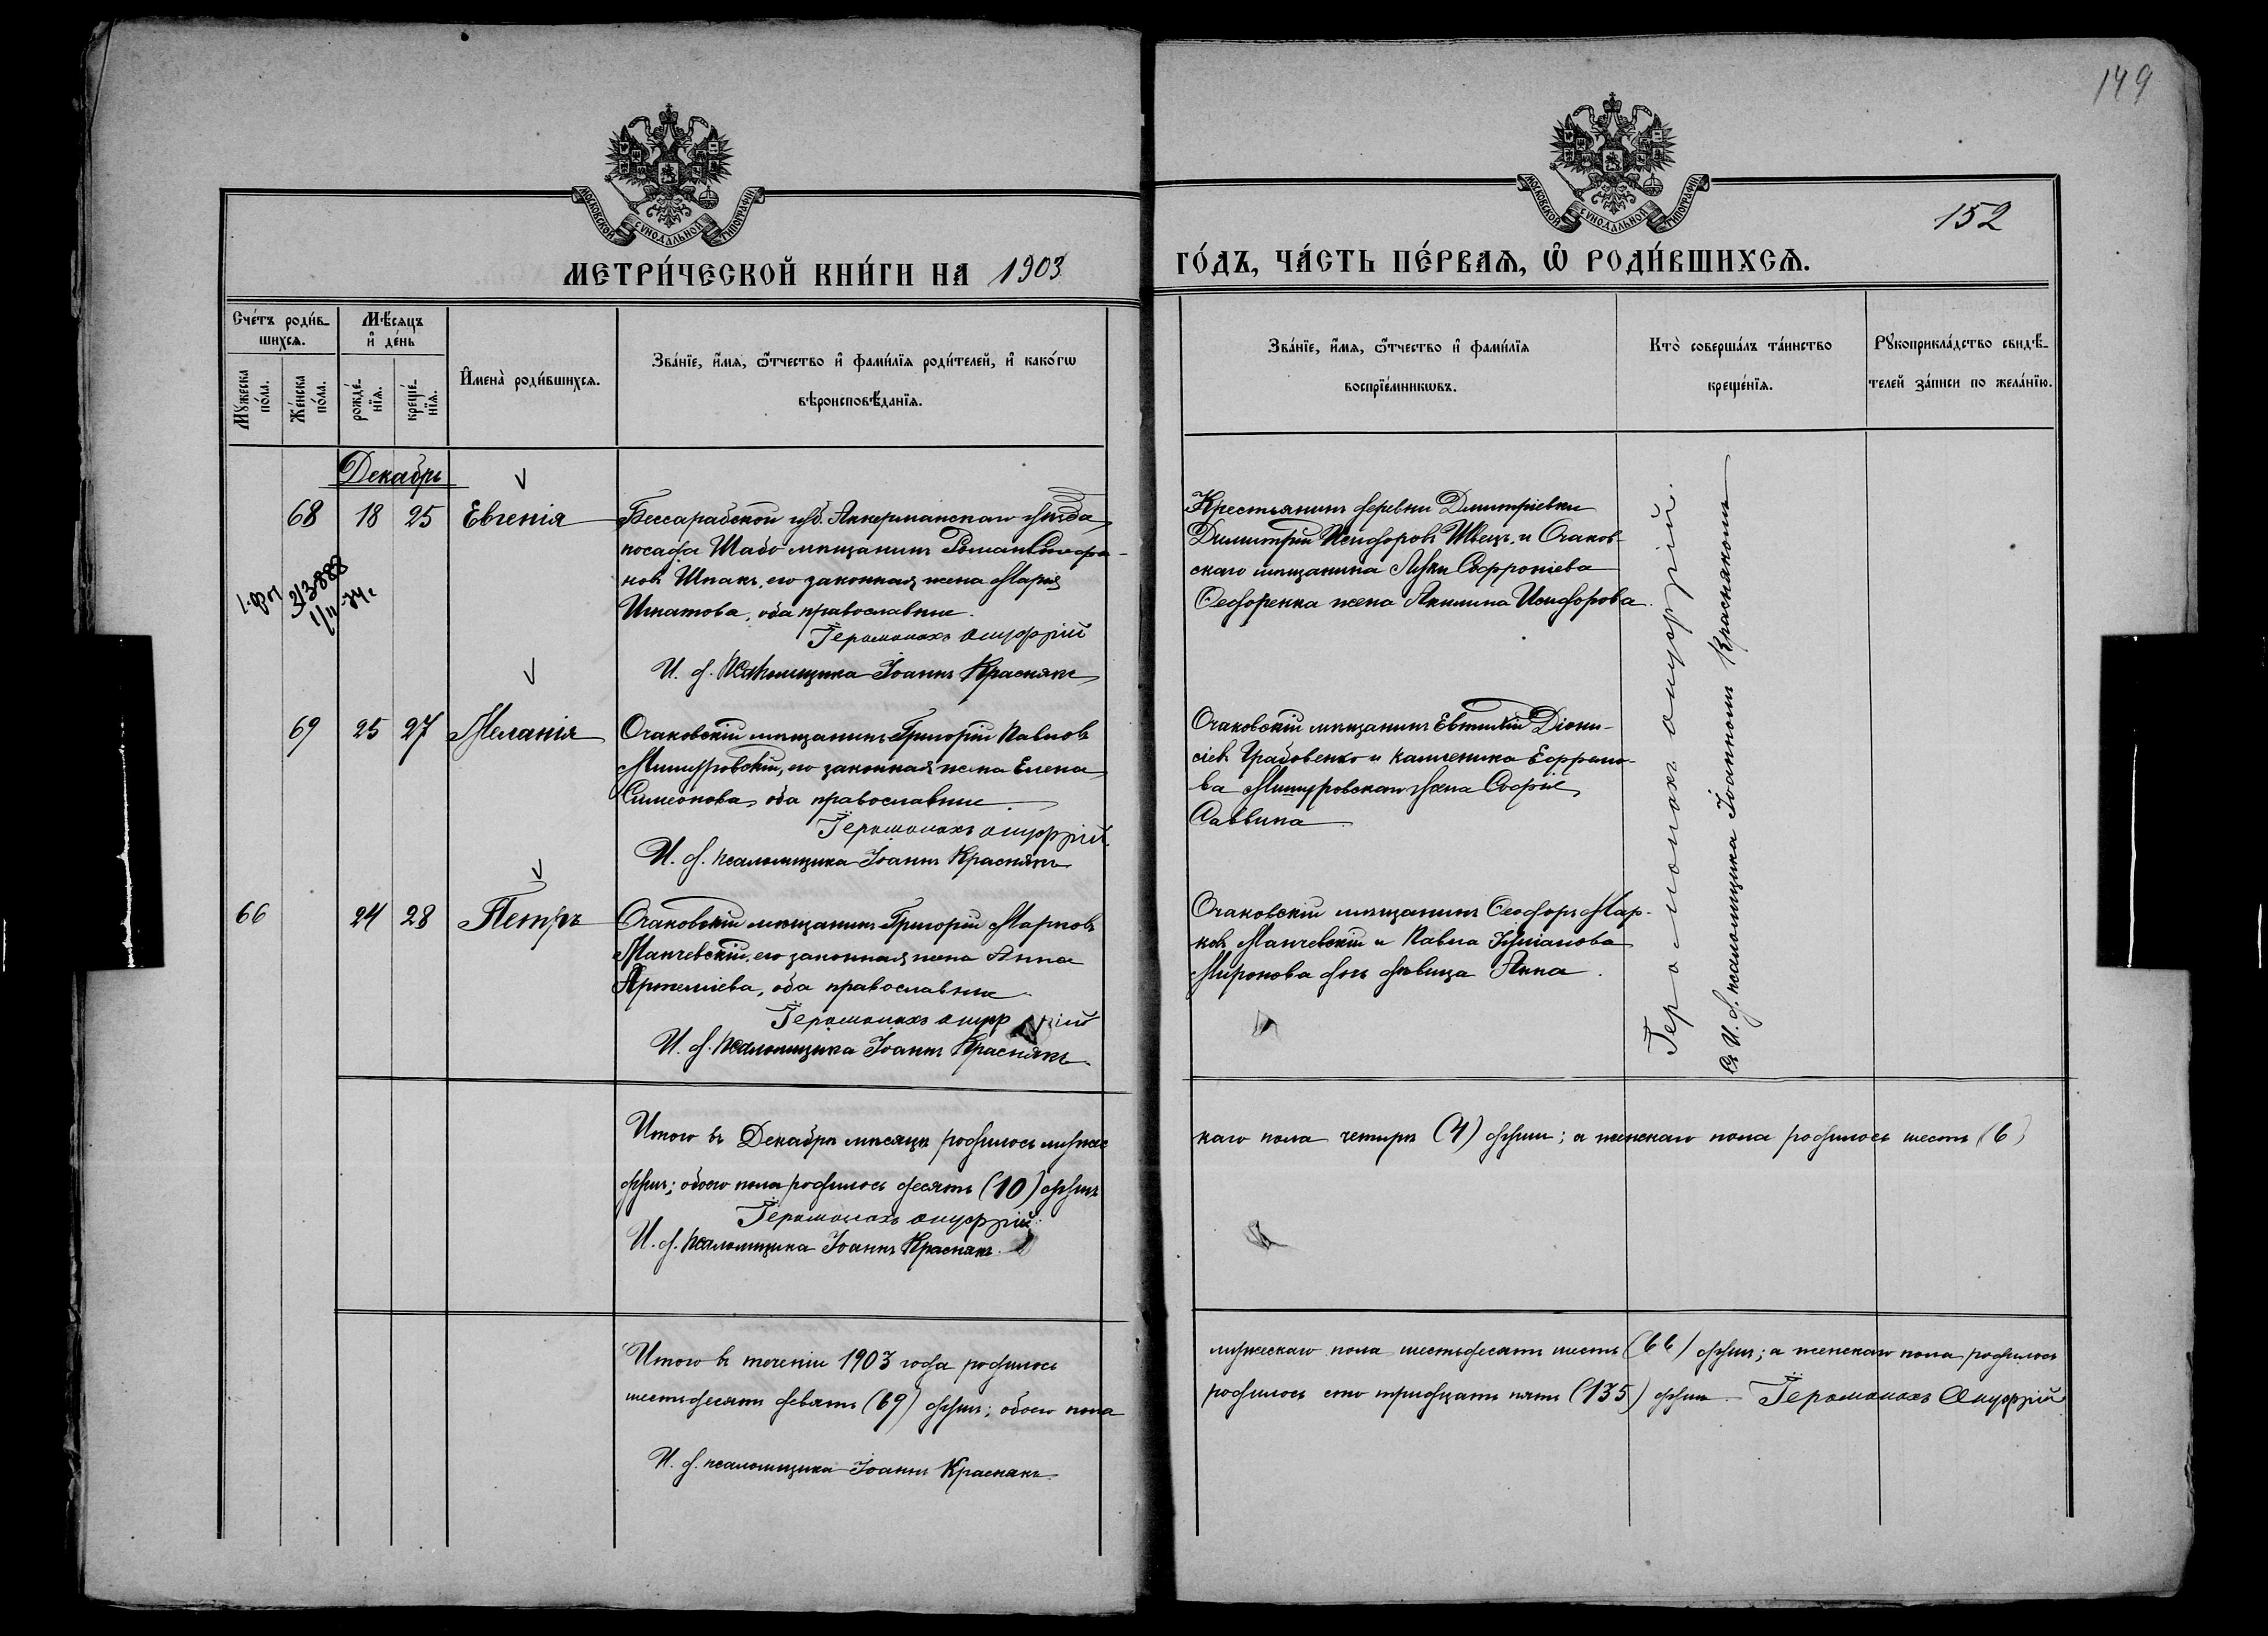 149
152
МОСКОВСКОЙ СУНОДАЛЬНОЙ ТИПОГРАФІИ
МОСКОВСКОЙ СУНОДАЛЬНОЙ ТИПОГРАФІИ
МЕТРИ́ЧЕСКОЙ КНИ́ГИ НА 1903
ГО́ДЪ, ЧА́СТЬ ПЕ́РВАѦ, Ѡ҆ РОДИ́ВШИХСѦ.
Сче́тъ роди́в-
шихсѧ.
Мꙋжеска по́ла.
Же́нска по́ла.
Мѣ́сѧцъ
и҆ де́нь
рожде́-
нїѧ.
креще́-
нїѧ.
И҆мена̀ роди́вшихсѧ.
Зва́нїе, и҆́мѧ, ѻ҆́тчество и҆ фами́лїѧ роди́телей, и҆ како́гѡ
вѣроисповѣ́данїѧ.
Зва́нїе, и҆́мѧ, ѻ҆́тчество и҆ фами́лїѧ
воспрїе́мникѡвъ.
Кто̀ соверша́лъ та́инство
креще́нїѧ.
Рꙋкоприкла́дство свидѣ́-
телей за́писи по жела́нїю.
Декабрь
68 18 25 Евгенія
Бессарабской губ. Аккерманскаго уѣзда
посада Шабо мѣщанинъ Романъ
новъ Шпакъ, его законная жена Марія
Игнатова, оба православные.
Іеромонахъ Онуфрій
И. д. псаломщика Іоаннъ Краснякъ
Крестьянинъ деревни Дмитріевки
Димитрій Исидоровъ Швецъ и Очаков-
скаго мѣщанина Луки Софроніева
Ѳедоренка жена Акилина Исидорова.
69 25 27 Меланія
Очаковскій мѣщанинъ Григорій Павловъ
его законная жена Елена
Симеонова, оба православные.
Іеромонахъ Онуфрій
И. д. псаломщика Іоаннъ Краснякъ
Очаковскій мѣщанинъ Евтихій Діони-
сіевъ Грабовенко и
ва жена Софія
Саввина
66 24 28 Петръ
Очаковскій мѣщанинъ Григорій Марковъ
Манчевскій, его законная жена Анна
Артеміева, оба православные
Іеромонахъ Онуфрій
И. д. псаломщика Іоаннъ Краснякъ
Очаковскій мѣщанинъ Ѳеодоръ Мар-
ковъ Манчевскій и Павла Іуліанова
Миронова дочь дѣвица Анна.
Іеромонахъ Онуфрій.
Съ И. д. псаломщика Іоанномъ Краснякомъ
Итого въ Декабрѣ мѣсяцѣ родилось мужес
каго пола четыре (4) души; а женскаго пола родилось шесть (6)
душъ; обоего пола родилось десять (10) душъ
Іеромонахъ Онуфрій
И. д. псаломщика Іоаннъ Краснякъ.
Итого въ теченіи 1903 года родилось
мужескаго пола шестьдесятъ шесть (66) душъ; а женскаго пола родилось
шестьдесятъ девять (69) душъ; обоего пола
родилось сто тридцать пять (135) душъ. Іеромонахъ Онуфрій
И. д. псаломщика Іоаннъ Краснякъ